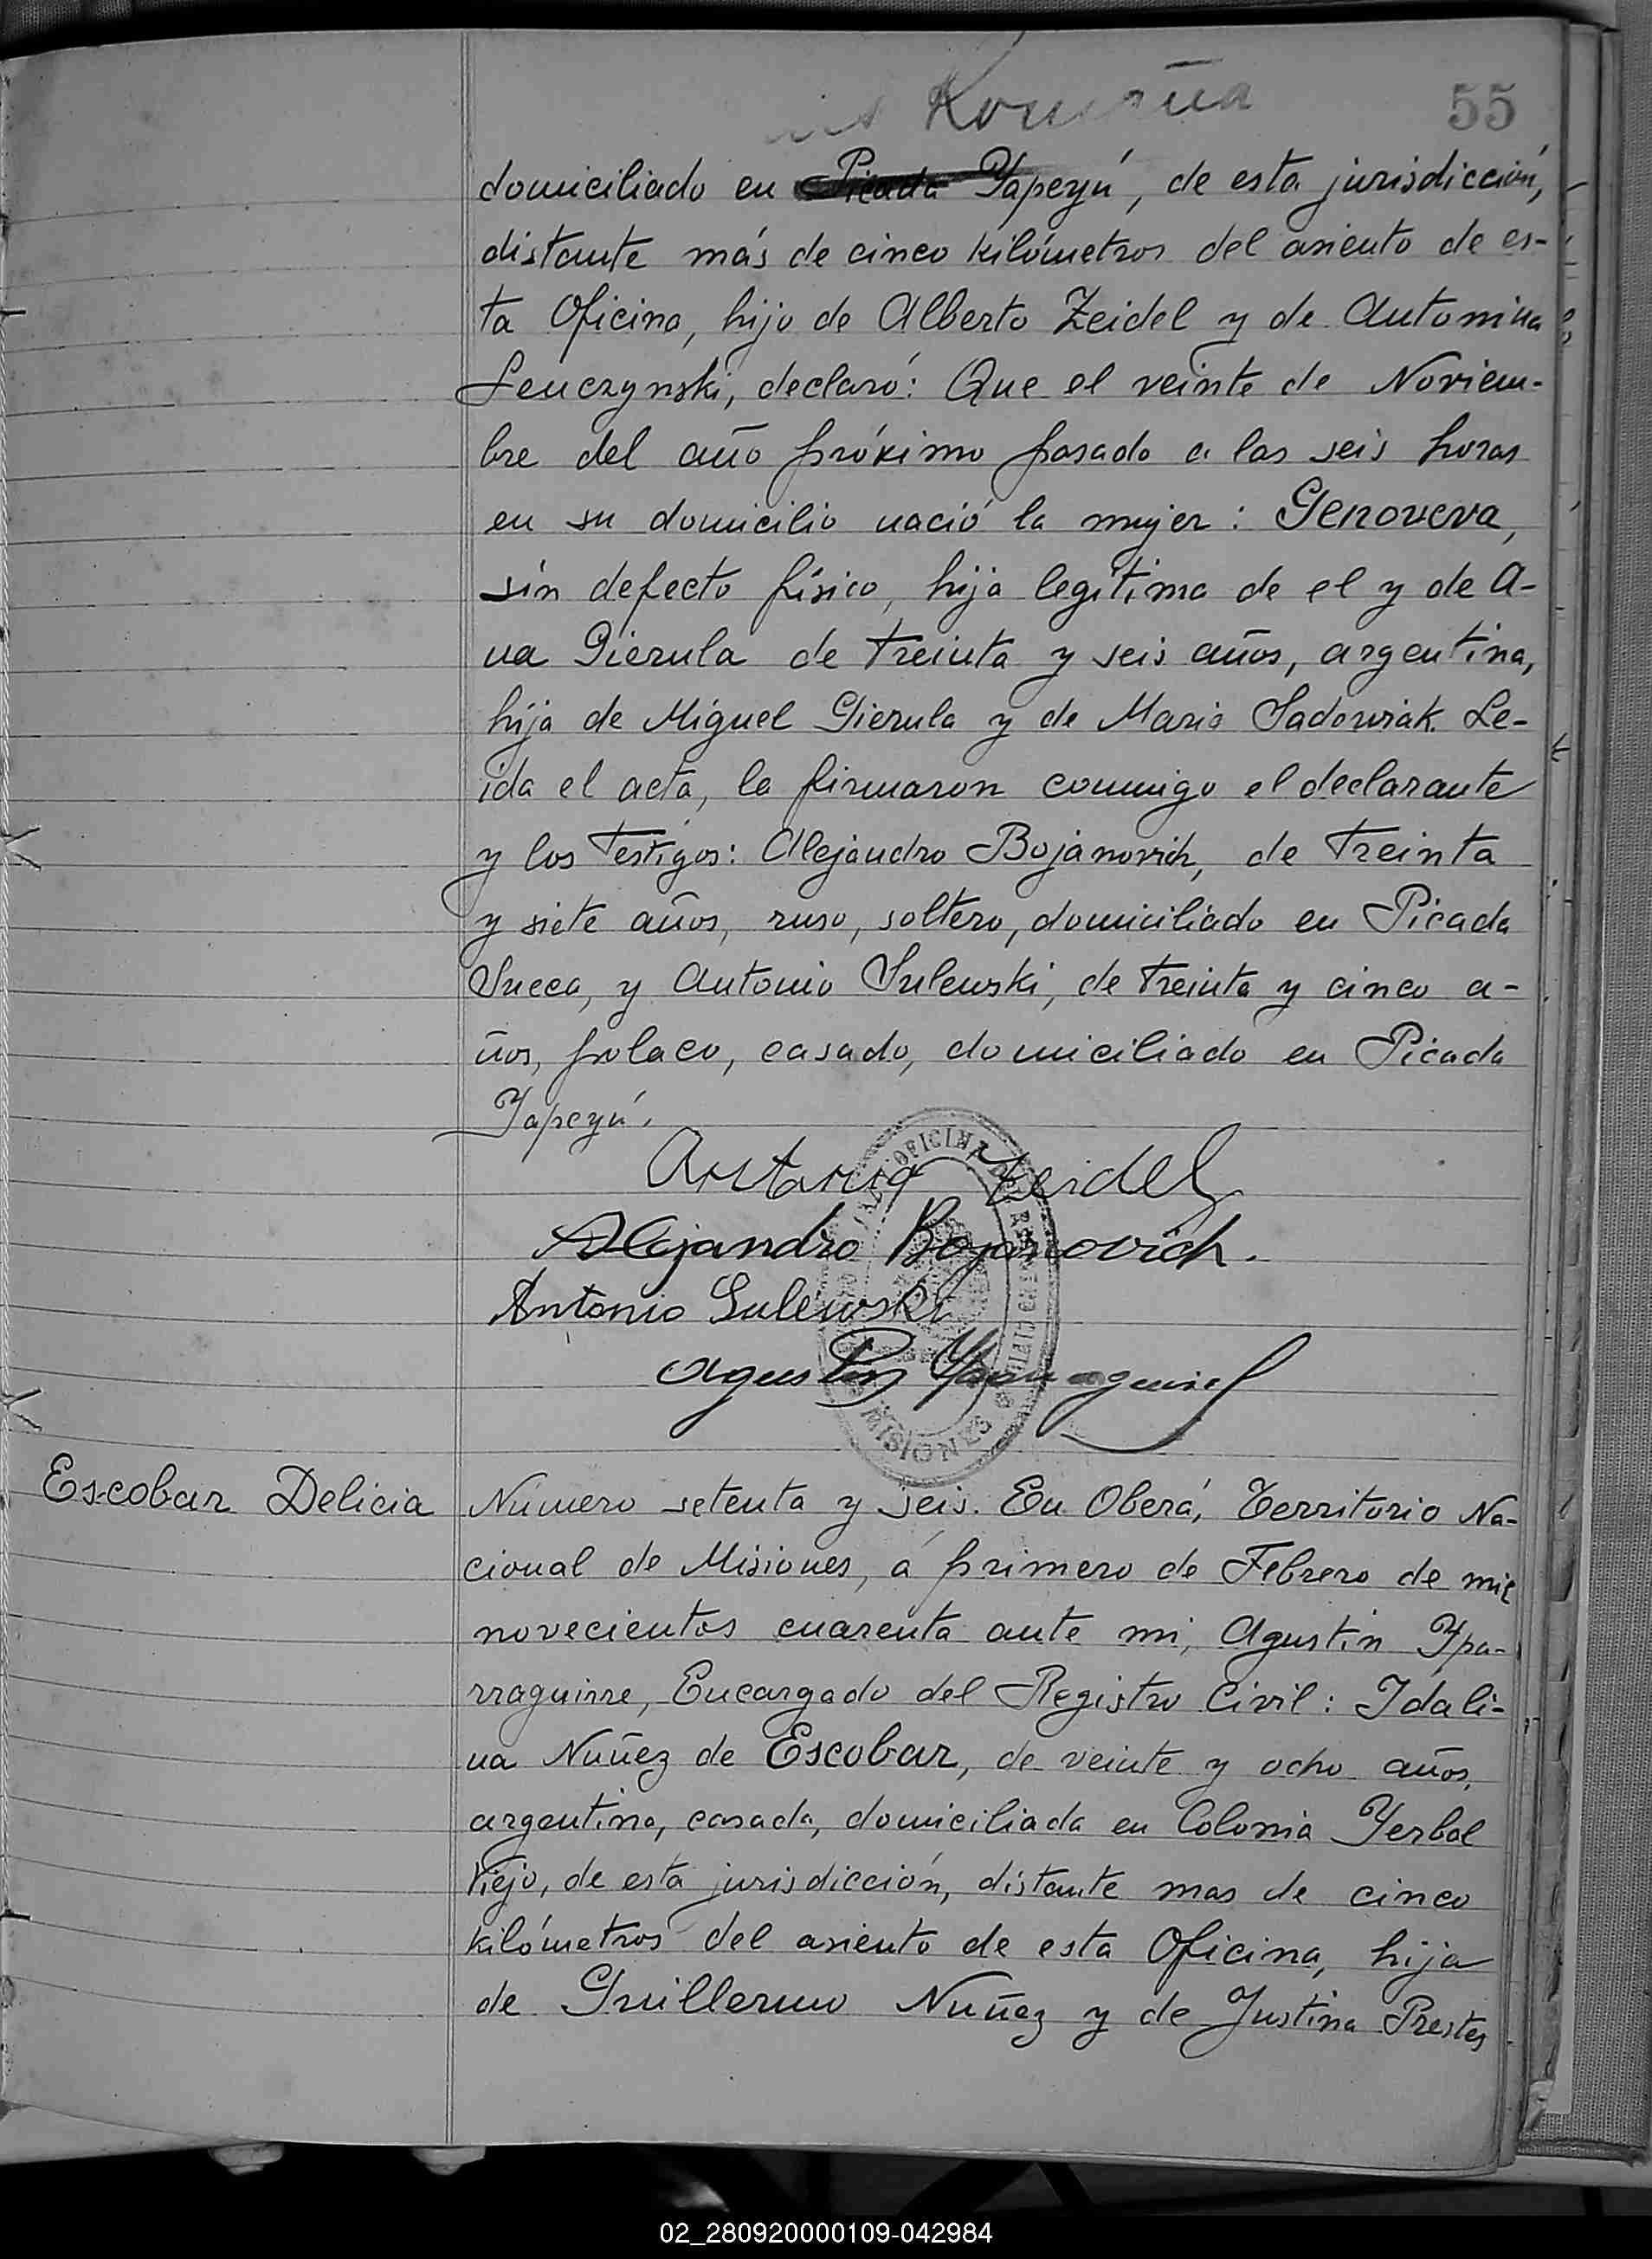 55
domiciliado en Picada Yapeyú, de esta jurisdicción,
distante más de cinco kilómetros del asiento de es-
ta Oficina, hijo de Alberto Zeidel y de Antonina
Lenczynski, declaró: Que el veinte de Noviem-
bre del año próximo pasado a las seis horas
en su domicilio nació la mujer: Genoveva,
sin defecto físico, hija legítima de el y de A-
na Gierula de treinta y seis años, argentina,
hija de Miguel Gierula y de Maria Sadowiak. Le-
ida el acta, la firmaron conmigo el declarante
y los testigos: Alejandro Bojanovich, de treinta
y siete años, ruso, soltero, domiciliado en Picada
Sueca, y Antonio Sulewski, de treinta y cinco a-
ños, polaco, casado, domiciliado en Picada
Yapeyú.
Antonio Zeidel
Alejandro Bojanovich.
Antonio Sulewski
Agustin Yparraguirre
OFICINA REGISTRO CIVIL
MISIONES
Escobar Delicia
Número setenta y seis. En Oberá, Territorio Na-
cional de Misiones, á primero de Febrero de mil
novecientos cuarenta ante mi, Agustin Ypa-
rraguirre, Encargado del Registro Civil: Idali-
na Nuñez de Escobar, de veinte y ocho años,
argentina, casada, domiciliada en Colonia Yerbal
Viejo, de esta jurisdicción, distante mas de cinco
kilómetros del asiento de esta Oficina, hija
de Guillermo Nuñez y de Justina Prestes
02_280920000109-042984